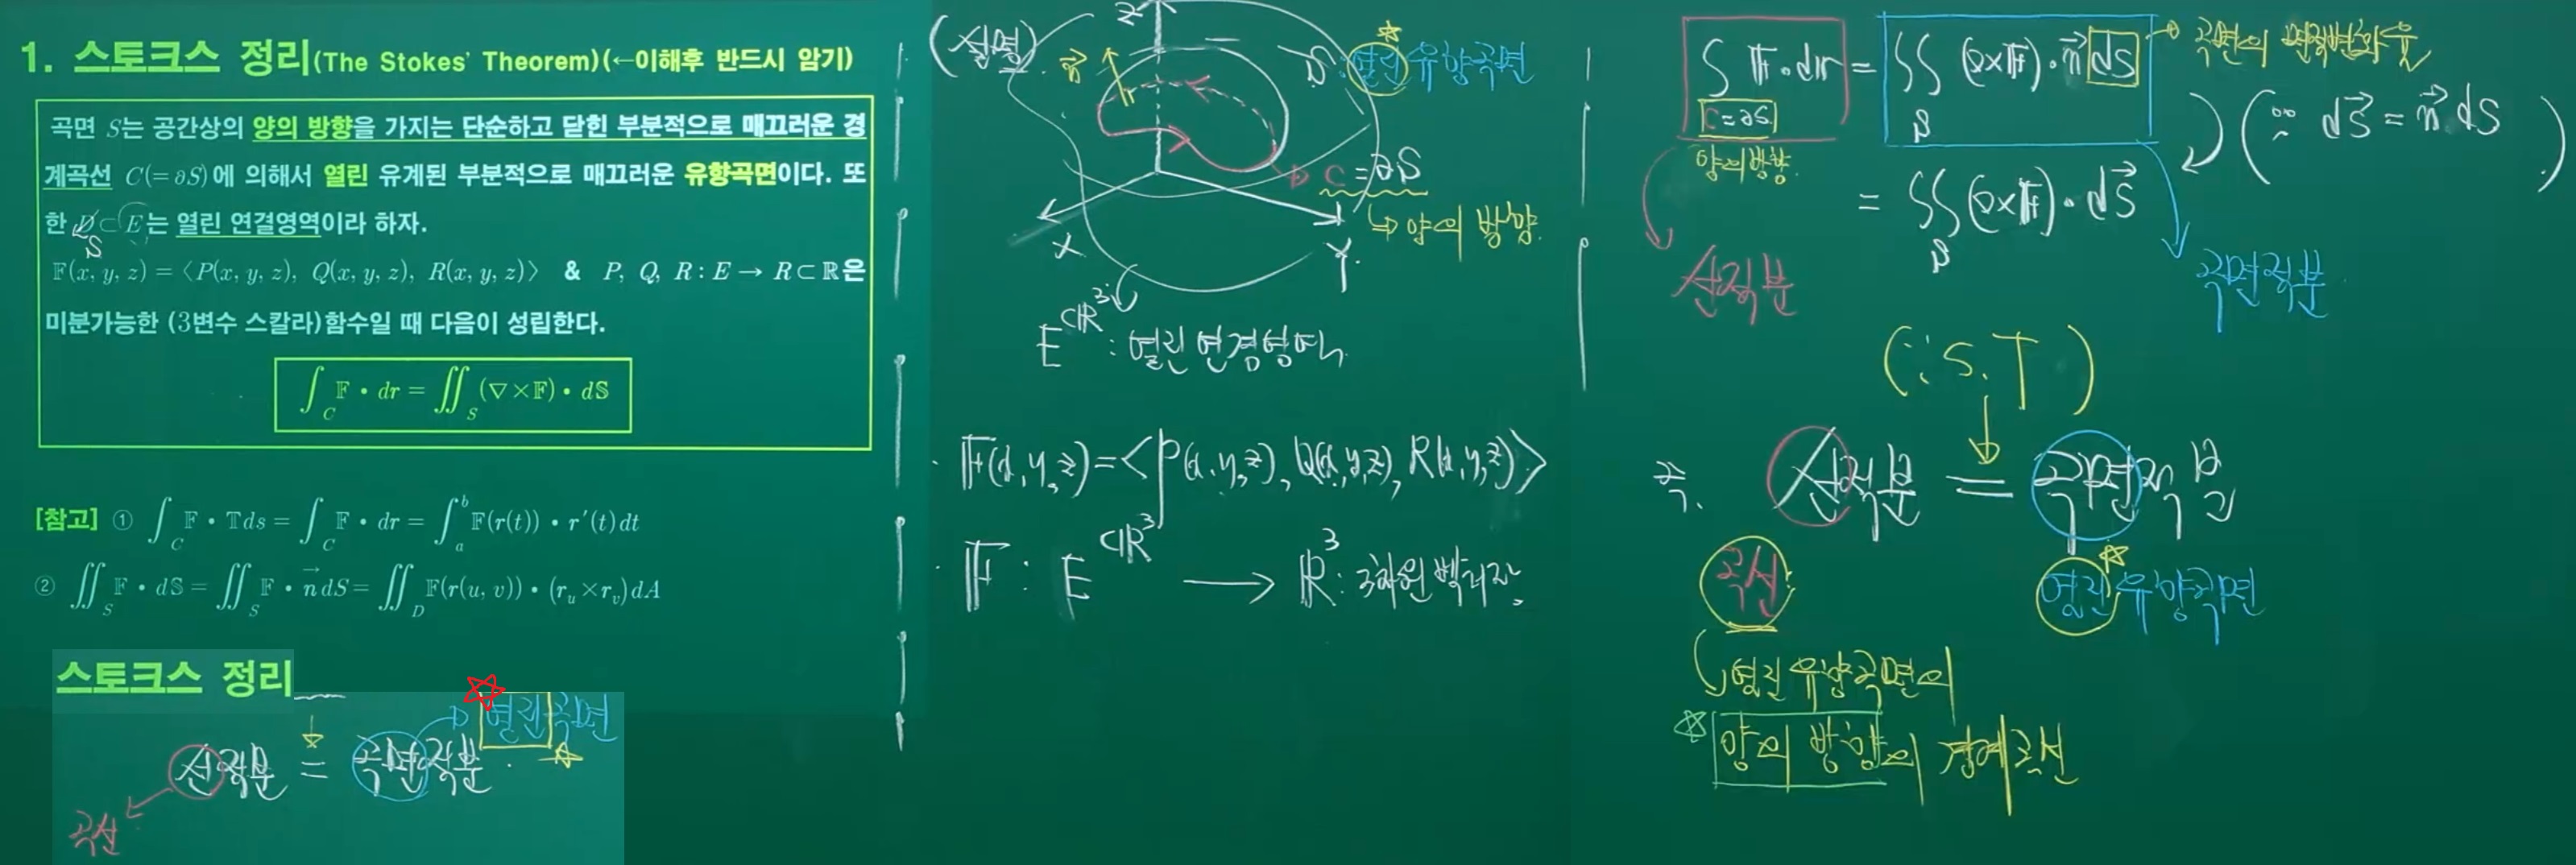 1. 스토크스 정리(The Stokes' Theorem)(←이해후 반드시 암기)
곡면 S는 공간상의 양의 방향을 가지는 단순하고 닫힌 부분적으로 매끄러운 경
계곡선 C(=∂S)에 의해서 열린 유계된 부분적으로 매끄러운 유향곡면이다. 또
한 D⊂E는 열린 연결영역이라 하자.
S
𝔽(x, y, z) = ⟨P(x, y, z), Q(x, y, z), R(x, y, z)⟩ & P, Q, R : E → R⊂ℝ은
미분가능한 (3변수 스칼라)함수일 때 다음이 성립한다.
∫_C 𝔽 • dr = ∬_S (∇×𝔽) • d𝕊
[참고] ① ∫_C 𝔽 • 𝕋ds = ∫_C 𝔽 • dr = ∫_a^b 𝔽(r(t)) • r′(t)dt
② ∬_S 𝔽 • d𝕊 = ∬_S 𝔽 • n⃗ dS = ∬_D 𝔽(r(u, v)) • (r_u × r_v)dA
스토크스 정리
열린곡면
선적분 = 곡면적분
곡선
(설명)
Z
n⃗
S : 열린 유향곡면
C = ∂S
↳ 양의 방향
X
Y
E⊂ℝ³ : 열린 연결영역
· 𝔽(x, y, z) = <P(x, y, z), Q(x, y, z), R(x, y, z)>
· 𝔽 : E⊂ℝ³ → ℝ³ : 3차원 벡터장
∫_{C=∂S} 𝔽 • dr = ∬_S (∇×𝔽) • n⃗ dS → 곡면의 면적변화율
양의방향
(∵ dS⃗ = n⃗ dS)
= ∬_S (∇×𝔽) • dS⃗
선적분
곡면적분
(∵ S.T)
즉. 선적분 = 곡면적분
곡선
열린 유향곡면
열린 유향곡면의
양의 방향의 경계곡선